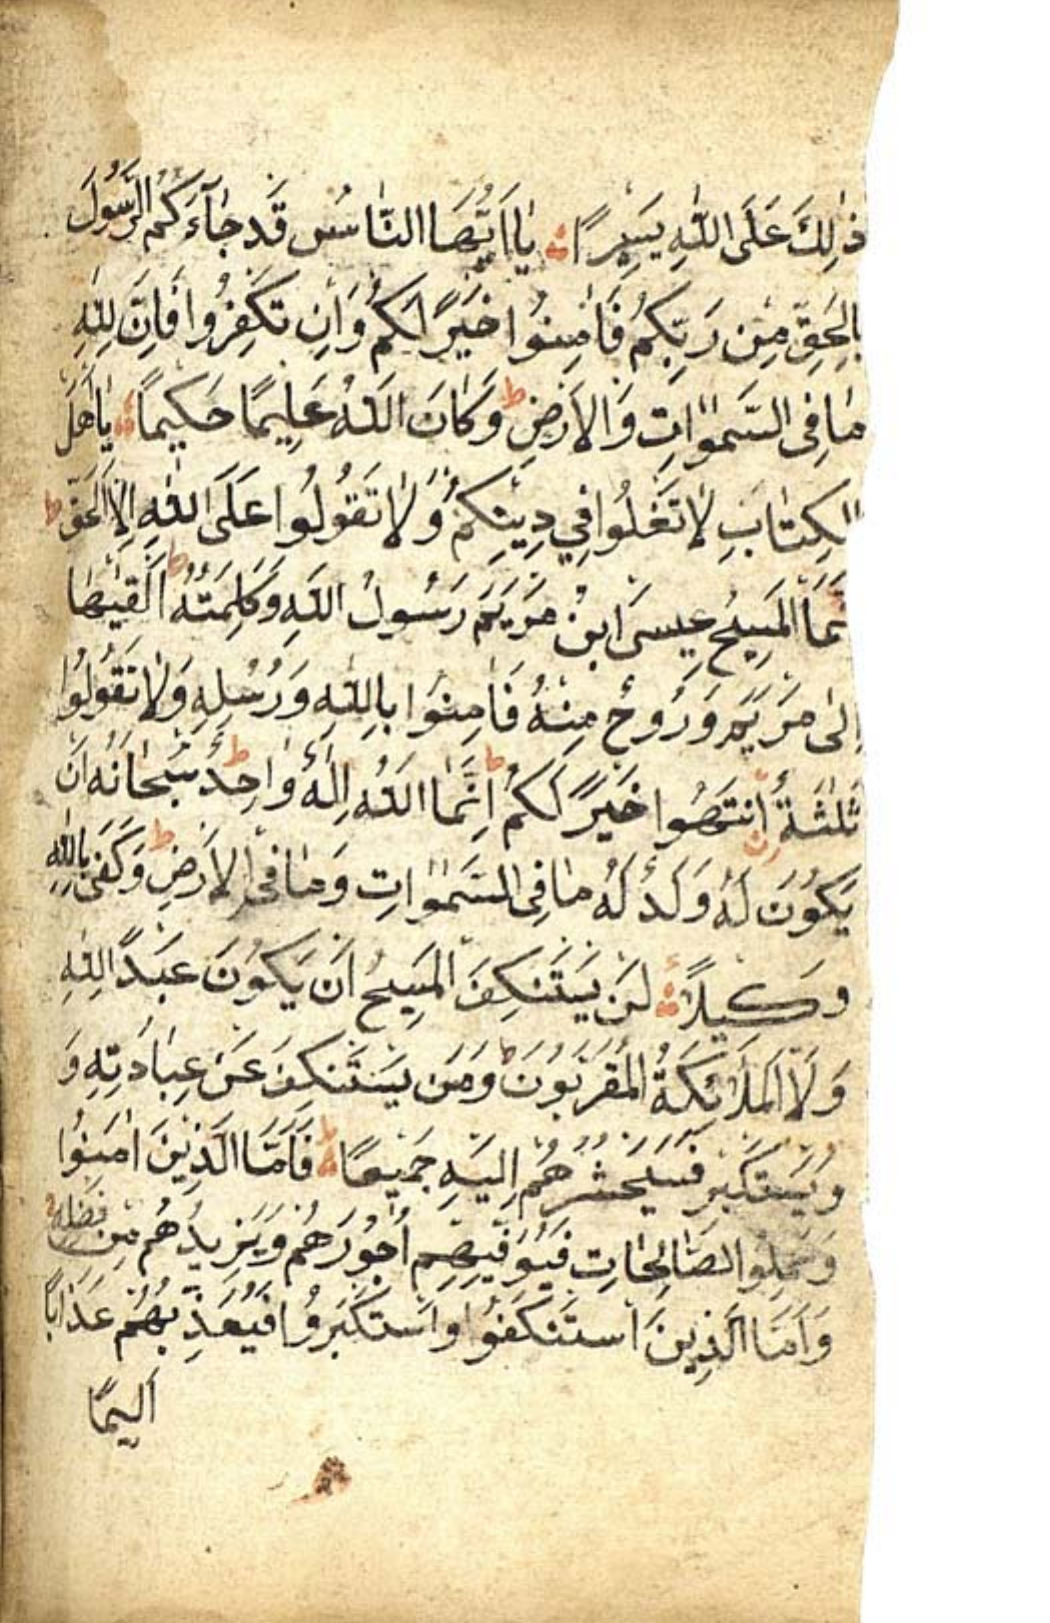 ذٰلِكَ عَلَى اللّٰهِ يَسِيرًا يٰا اَيُّهَا النَّاسُ قَدْ جٰآءَكُمُ الرَّسُولُ
بِالْحَقِّ مِنْ رَبِّكُمْ فَاٰمِنُوا خَيْرًا لَكُمْ وَاِنْ تَكْفُرُوا فَاِنَّ لِلّٰهِ
مٰا فِى السَّمٰوٰاتِ وَالْاَرْضِ ط وَكٰانَ اللّٰهُ عَلِيمًا حَكِيمًا يٰا اَهْلَ
الْكِتٰابِ لٰا تَغْلُوا فِي دِينِكُمْ وَلٰا تَقُولُوا عَلَى اللّٰهِ اِلَّا الْحَقَّ ط
نَّمَا الْمَسِيحُ عِيسَى ابْنُ مَرْيَمَ رَسُولُ اللّٰهِ وَكَلِمَتُهُ ط اَلْقٰيهٰا
اِلٰى مَرْيَمَ وَرُوحٌ مِنْهُ فَاٰمِنُوا بِاللّٰهِ وَرُسُلِهِ وَلٰا تَقُولُوا
ثَلٰثَةٌ اِنْتَهُوا خَيْرًا لَكُمْ ط اِنَّمَا اللّٰهُ اِلٰهٌ وٰاحِدٌ ط سُبْحٰانَهُ اَنْ
يَكُونَ لَهُ وَلَدٌ لَهُ مٰا فِى السَّمٰوٰاتِ وَمٰا فِى الْاَرْضِ ط وَكَفٰى بِاللّٰهِ
وَكِيلًا لَنْ يَسْتَنْكِفَ الْمَسِيحُ اَنْ يَكُونَ عَبْدًا لِلّٰهِ
وَلَا الْمَلَائِكَةُ الْمُقَرَّبُونَ ط وَمَنْ يَسْتَنْكِفْ عَنْ عِبٰادَتِهِ وَ
وَيَسْتَكْبِرْ فَسَيَحْشُرُهُمْ اِلَيْهِ جَمِيعًا فَاَمَّا الَّذِينَ اٰمَنُوا
وَعَمِلُوا الصّٰالِحٰاتِ فَيُوَفِّيهِمْ اُجُورَهُمْ وَيَزِيدُهُمْ مِنْ فَضْلِهِ
وَاَمَّا الَّذِينَ اسْتَنْكَفُوا وَاسْتَكْبَرُوا فَيُعَذِّبُهُمْ عَذَابًا
اَلِيمًا